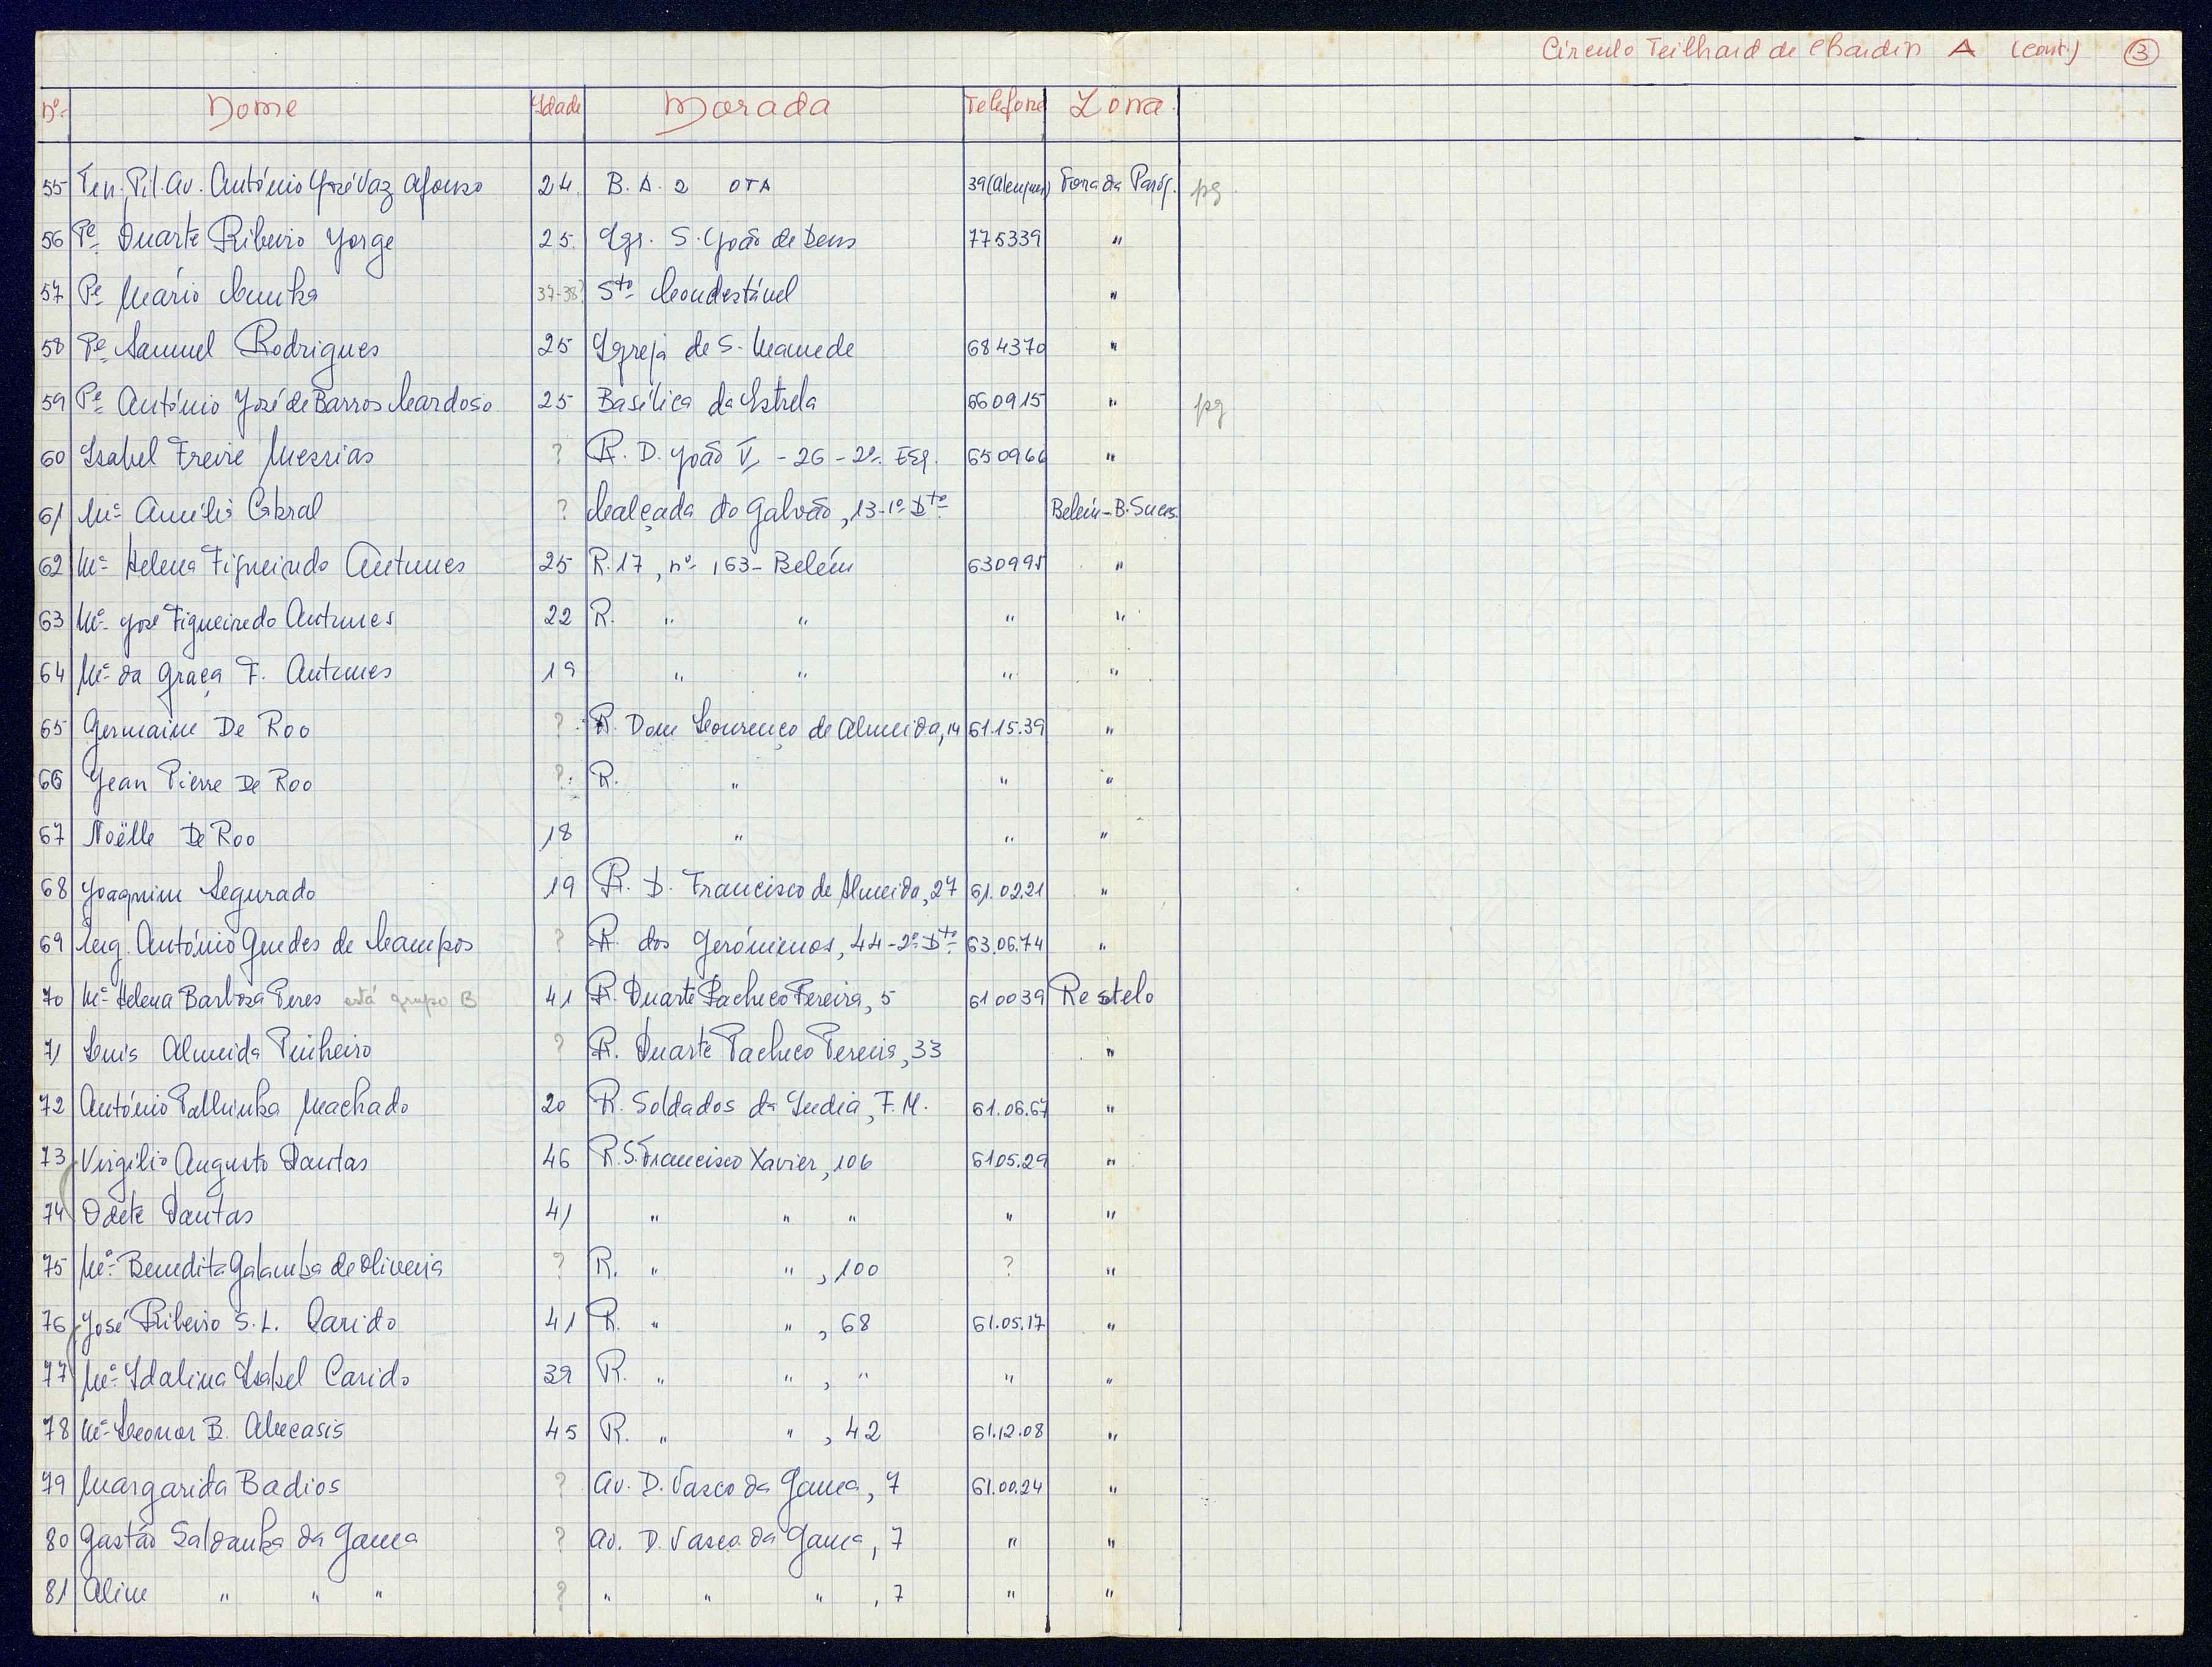 Círculo Teilhard de Chardin A (cont.) 3
Nº Nome Idade Morada Telefone Zona
55 Ten. Pil. Av. António José Vaz Afonso 24 B. A. 2 OTA 39 (Alenquer) Fora da Paróq. pg.
56 Pe Duarte Ribeiro Jorge 25 Igr. S. João de Deus 775339 "
57 Pe Mário Cunha 37-38? Sto Condestável "
58 Pe Samuel Rodrigues 25 Igreja de S. Mamede 684370 "
59 Pe António José de Barros Cardoso 25 Basílica da Estrela 660915 " pg
60 Isabel Freire Messias ? R. D. João V, - 26 - 2º. Esq. 650966 "
61 Mª Amélia Cabral ? Calçada do Galvão, 13-1º Dto Belém-B. Suces.
62 Mª Helena Figueiredo Antunes 25 R. 17, nº 163 - Belém 630995 "
63 Mª José Figueiredo Antunes 22 R. " " " "
64 Mª da Graça F. Antunes 19 " " " "
65 Germaine De Roo ? R. Dom Lourenço de Almeida, 14 61.15.39 "
66 Jean Pierre De Roo ? R. " " "
67 Noëlle De Roo 18 " " "
68 Joaquim Segurado 19 R. D. Francisco de Almeida, 27 61.02.21 "
69 Eng. António Guedes de Campos ? R. dos Gerónimos, 44-2º Dto 63.06.74 "
70 Mª Helena Barbosa Peres está grupo B 41 R. Duarte Pacheco Pereira, 5 610039 Restelo
71 Luis Almeida Pinheiro ? R. Duarte Pacheco Pereira, 33 "
72 António Palhinha Machado 20 R. Soldados da India, F.M. 61.06.67 "
73 Virgílio Augusto Dantas 46 R. S. Francisco Xavier, 106 6105.29 "
74 Odete Dantas 41 " " " " "
75 Mª Benedita Galamba de Oliveira ? R. " " , 100 ? "
76 José Ribeiro S. L. Carido 41 R. " " , 68 61.05.17 "
77 Mª Idalina Isabel Carido 39 R. " " , " " "
78 Mª Leonor B. Abecasis 45 R. " " , 42 61.12.08 "
79 Margarida Badios ? Av. D. Vasco da Gama, 7 61.00.24 "
80 Gastão Saldanha da Gama ? Av. D. Vasco da Gama, 7 " "
81 Aline " " " ? " " " , 7 " "